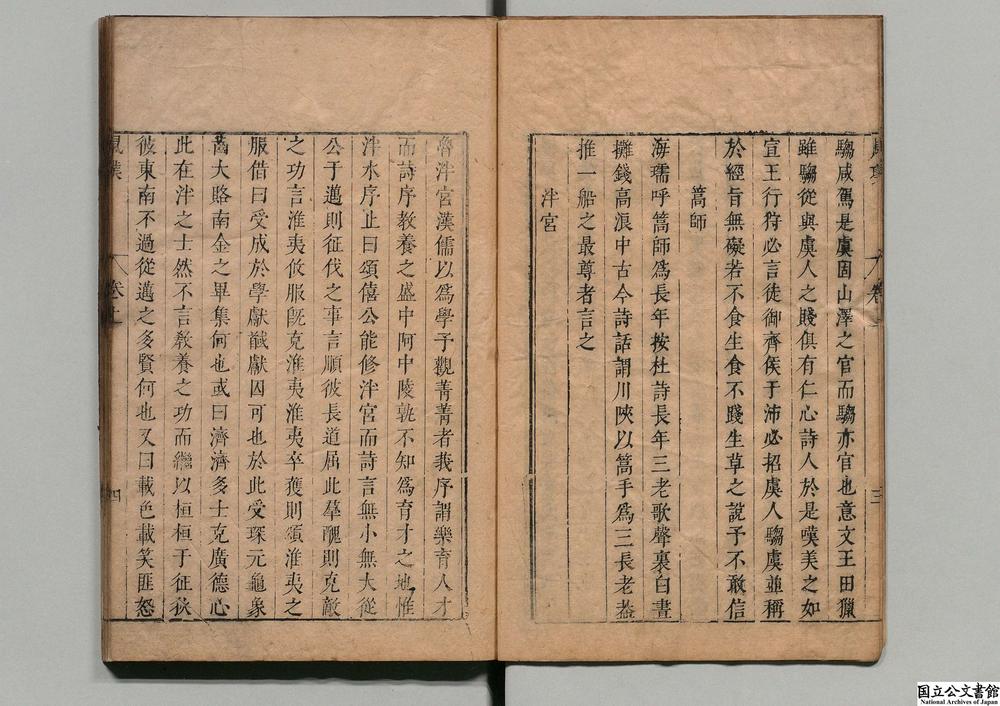 騶咸駕是虞固山澤之官而騶亦官也意文王田獵
雖騶從與虞人之賤俱有仁心詩人於是嘆美之如
宣王行狩必言徒御齊侯于沛必招虞人騶虞並稱
於經旨無礙若不食生食不踐生草之說予不敢信
篙師
海壖呼篙師爲長年按杜詩長年三老歌聲裏白晝
攤錢高浪中古今詩話謂川陜以篙手爲三長老葢
推一船之最尊者言之
泮宮
三
魯泮宮漢儒以爲學予觀菁菁者莪序謂樂育人才
而詩序教養之盛中阿中陵孰不知爲育才之地惟
泮水序止曰頌僖公能修泮宮而詩言無小無大從
公于邁則征伐之事言順彼長道屈此羣醜則克敵
之功言淮夷攸服旣克淮夷淮夷卒獲則頌淮夷之
服借曰受成於學獻馘獻囚可也於此受琛元龜象
齒大賂南金之畢集何也或曰濟濟多士克廣德心
此在泮之士然不言教養之功而繼以桓桓于征狄
彼東南不過從邁之多賢何也又曰載色載笑匪怒
卷上
四
国立公文書館
National Archives of Japan